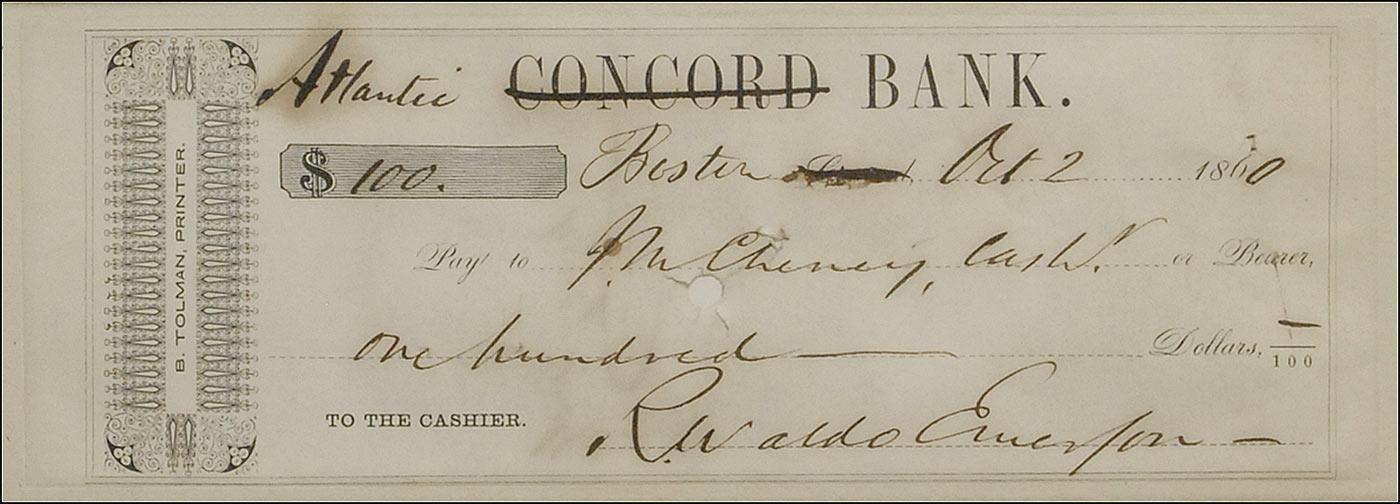 Atlantic CONCORD BANK.
$ 100. Boston Oct 2 1860
Pay to J M Cheney, Cashr. or Bearer,
one hundred — Dollars, — /100
TO THE CASHIER. R. Waldo Emerson —
B. TOLMAN, PRINTER.